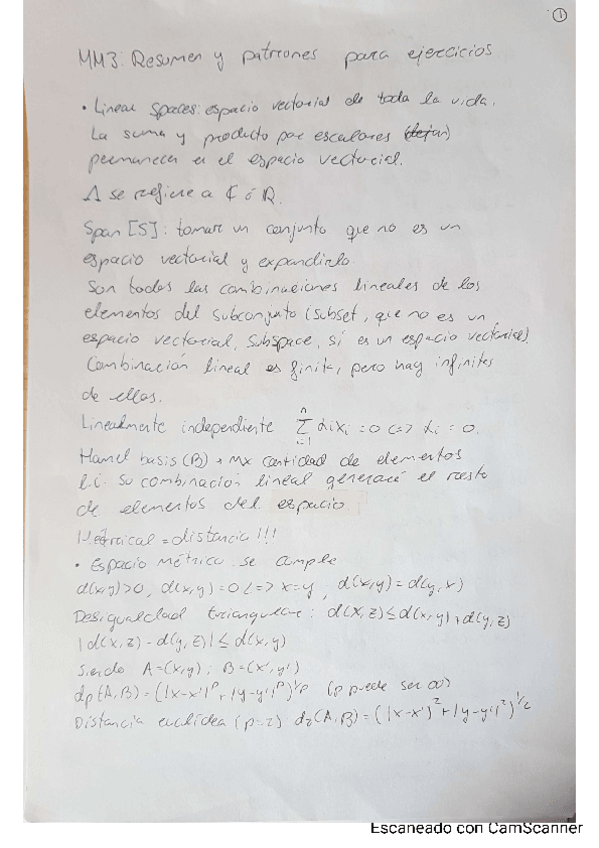 ①
MM3: Resumen y patrones para ejercicios
• Linear Spaces: espacio vectorial de toda la vida.
La suma y producto por escalares (dejan)
permanecen en el espacio vectorial.
Λ se refiere a ℂ ó ℝ.
Span [S]: tomar un conjunto que no es un
espacio vectorial y expandirlo.
Son todas las combinaciones lineales de los
elementos del subconjunto (subset, que no es un
espacio vectorial, subspace, sí es un espacio vectorial).
Combinación lineal es finita, pero hay infinitas
de ellas.
Linealmente independiente Σ_{i=1}^{n} αixi = 0 <=> αi = 0.
Hamel basis (B) • Mx cantidad de elementos
l.i. Su combinación lineal generará el resto
de elementos del espacio.
Metrical = distancia!!!
• Espacio métrico se cumple
d(x,y)>0, d(x,y)=0 <=> x=y, d(x,y)=d(y,x)
Desigualdad triangular: d(x,z)≤d(x,y)+d(y,z)
|d(x,z) - d(y,z)| ≤ d(x,y)
Siendo A=(x,y); B=(x',y')
dp(A,B) = (|x-x'|^p + |y-y'|^p)^1/p (p puede ser ∞)
Distancia euclídea (p=2) d2(A,B) = (|x-x'|^2 + |y-y'|^2)^1/2
Escaneado con CamScanner